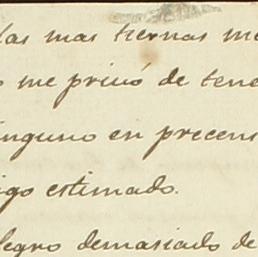 las mas tiernas me
me privó de tene
inguno en precens
igo estimado.
legro demasiado de